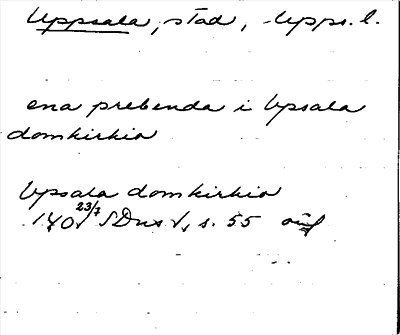 Uppsala, stad, Upps. l.
ena prebenda i Upsala
domkirkio
Upsala domkirkio
23/7 SDns 1, s. 55